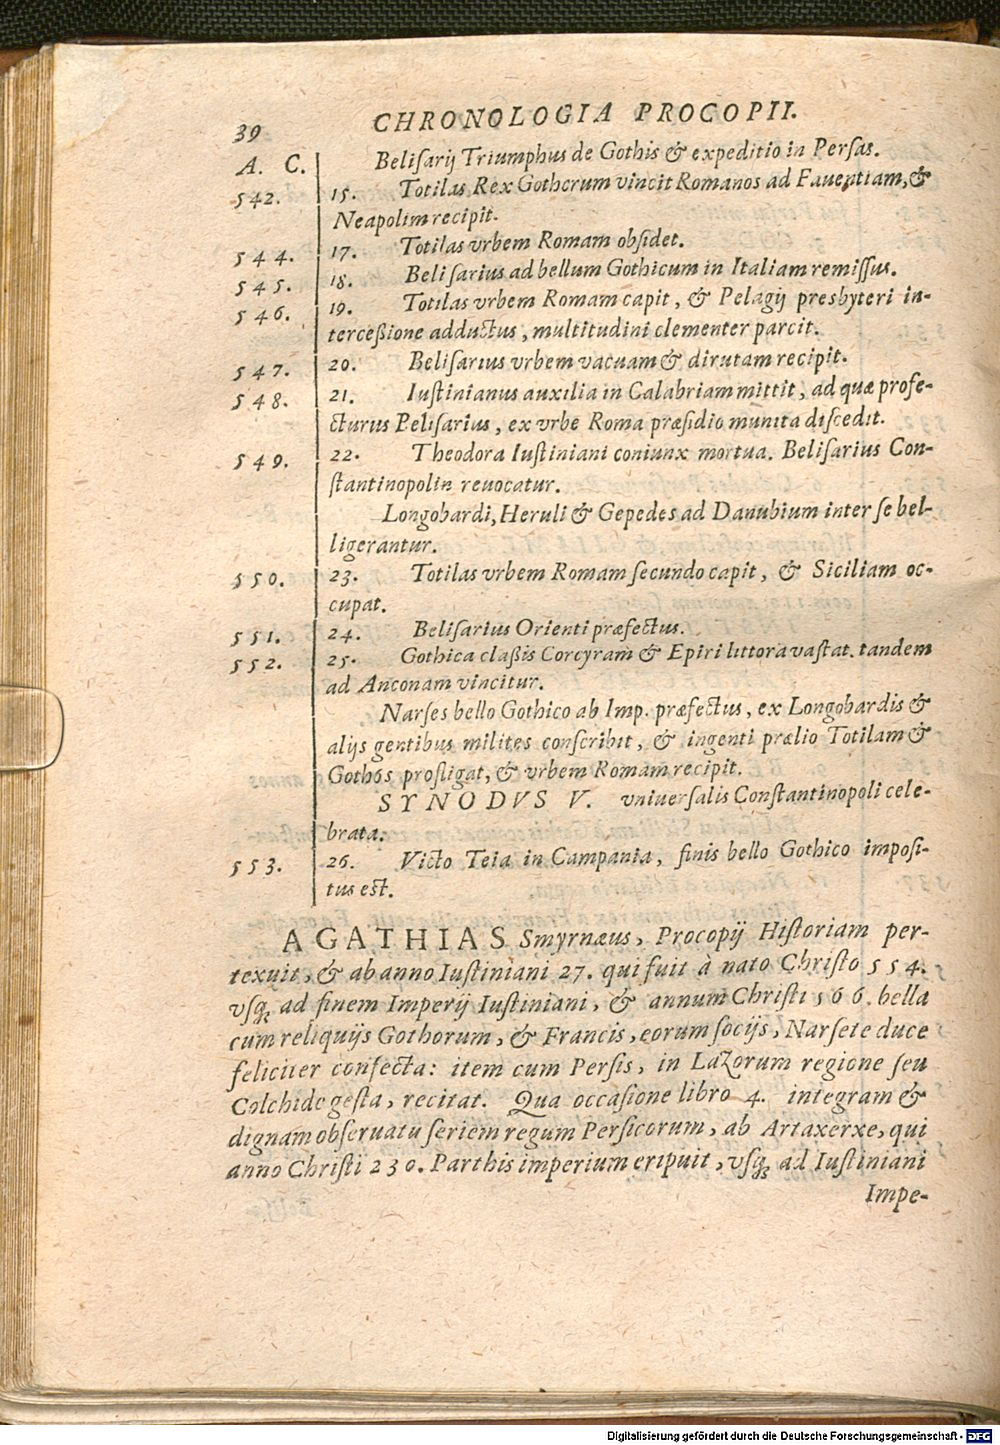 39 CHRONOLOGIA PROCOPII.
A. C. Beliſarij Triumphus de Gothis & expeditio in Perſas.
542. 15. Totilas Rex Gothcrum vincit Romanos ad Fauentiam, &
Neapolim recipit.
544. 17. Totilas vrbem Romam obſidet.
545. 18. Beliſarius ad bellum Gothicum in Italiam remiſſus.
546. 19. Totilas vrbem Romam capit, & Pelagij presbyteri in-
terceßione adductus, multitudini clementer parcit.
547. 20. Beliſarius vrbem vacuam & dirutam recipit.
548. 21. Iuſtinianus auxilia in Calabriam mittit, ad quæ profe-
cturus Peliſarius, ex vrbe Roma præſidio munita diſcedit.
549. 22. Theodora Iuſtiniani coniunx mortua. Beliſarius Con-
ſtantinopolin reuocatur.
Longobardi, Heruli & Gepedes ad Danubium inter ſe bel-
ligerantur.
550. 23. Totilas vrbem Romam ſecundo capit, & Siciliam oc-
cupat.
551. 24. Beliſarius Orienti præfectus.
552. 25. Gothica claßis Corcyram & Epiri littora vaſtat. tandem
ad Anconam vincitur.
Narſes bello Gothico ab Imp. præfectus, ex Longobardis &
alijs gentibus milites conſcribit, & ingenti prælio Totilam &
Gothos profligat, & vrbem Romam recipit.
SYNODVS V. vniuerſalis Conſtantinopoli cele-
brata.
553. 26. Victo Teia in Campania, finis bello Gothico impoſi-
tus eſt.
AGATHIAS Smyrnæus, Procopij Hiſtoriam per-
texuit, & ab anno Iuſtiniani 27. qui fuit à nato Chriſto 554.
vſq; ad finem Imperij Iuſtiniani, & annum Chriſti 566. bella
cum reliquijs Gothorum, & Francis, eorum ſocijs, Narſete duce
feliciter confecta: item cum Perſis, in Lazorum regione ſeu
Colchide geſta, recitat. Qua occaſione libro 4. integram &
dignam obſeruatu ſeriem regum Perſicorum, ab Artaxerxe, qui
anno Chriſti 230. Parthis imperium eripuit, vſq; ad Iuſtiniani
Impe-
Digitalisierung gefördert durch die Deutsche Forschungsgemeinschaft - DFG